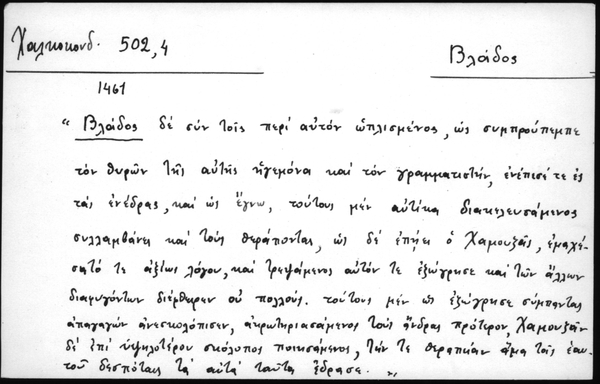 Χαλκοκονδ. 502,4
Βλάδος
1461
"Βλάδος δέ σύν τοῖς περί αὐτόν ὡπλισμένος, ὡς συμπροὔπεμπε
τόν θυρῶν τῆς αὐτῆς ἡγεμόνα καί τόν γραμματιστήν, ἐνέπισέ τε ἐς
τάς ἐνέδρας, καί ὡς ἔγνω, τούτους μέν αὐτίκα διακελευσάμενος
συλλαμβάνει καί τούς θεράποντας, ὡς δέ ἐπῄει ὁ Χαμουζᾶς, ἐμαχέ-
σατό τε ἀξίως λόγου, καί τρεψάμενος αὐτόν τε ἐζώγρησε καί τῶν ἄλλων
διαφυγόντων διέφθειρεν οὐ πολλούς. τούτους μέν ὡς ἐζώγρησε σύμπαντας
ἀπαγαγών ἀνεσκολόπισεν, ἀκρωτηριασάμενος τούς ἄνδρας πρότερον, Χαμουζᾶν
δέ ἐπί ὑψηλοτέρου σκόλοπος ποιησάμενος, τῶν τε θεραπειῶν ἅμα τοῖς ἑαυ-
τοῦ δεσπόταις τά αὐτά ταῦτα ἔδρασε."